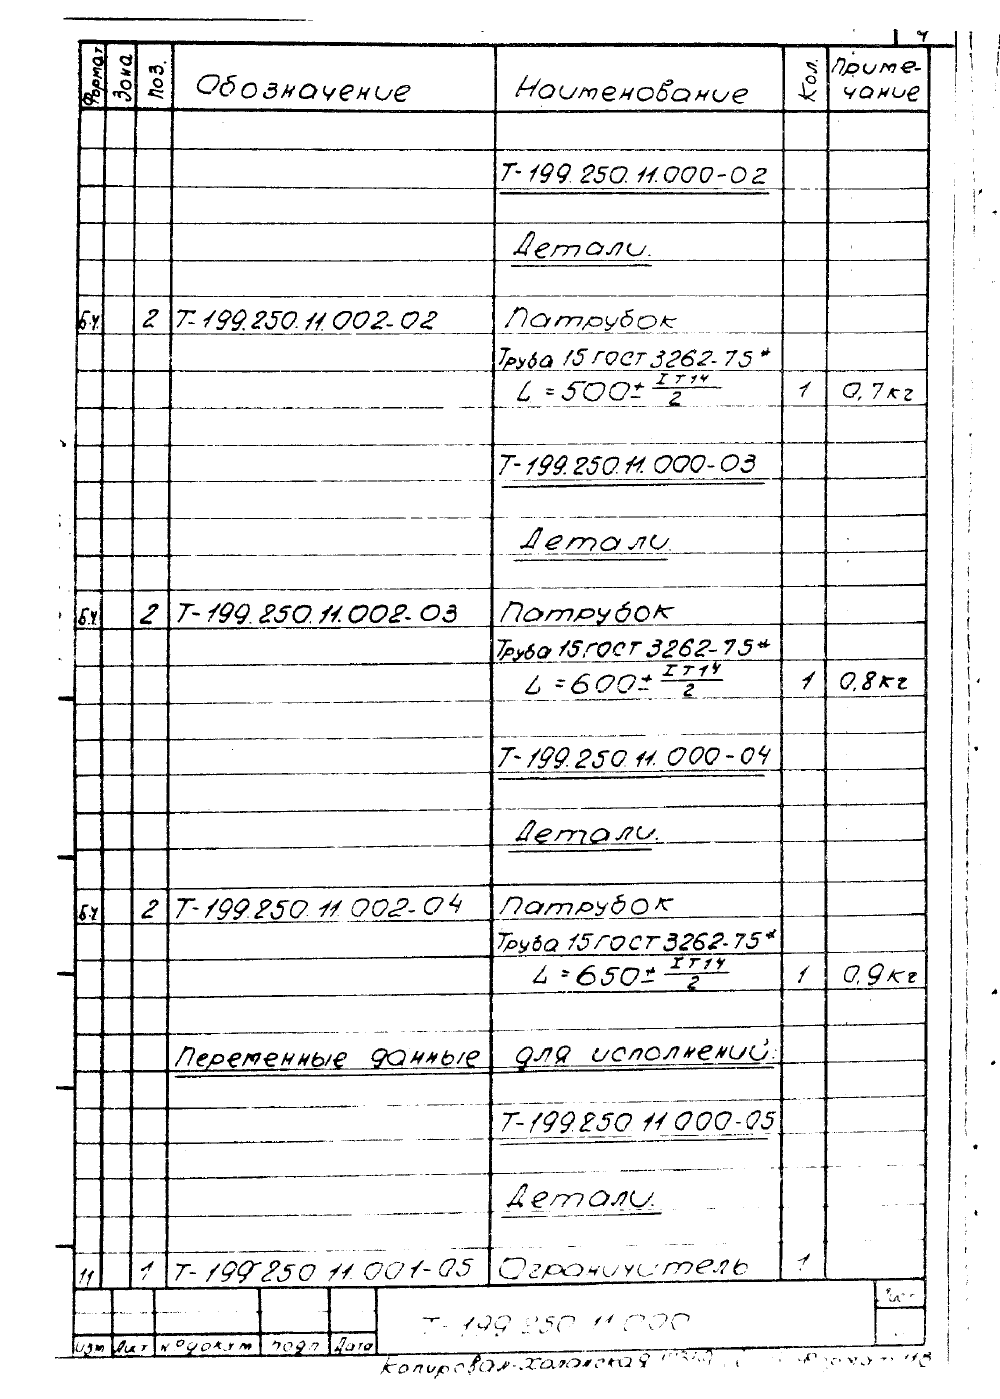 4
Формат Зона Поз. Обозначение Наименование Кол. Приме-
чание
Т-199.250.11.000-02
Детали.
БЧ 2 Т-199.250.11.002-02 Патрубок
Труба 15 ГОСТ 3262-75*
L = 500 ± IT14/2 1 0,7 кг
Т-199.250.11.000-03
Детали.
БЧ 2 Т-199.250.11.002-03 Патрубок
Труба 15 ГОСТ 3262-75*
L = 600 ± IT14/2 1 0,8 кг
Т-199.250.11.000-04
Детали.
БЧ 2 Т-199.250.11.002-04 Патрубок
Труба 15 ГОСТ 3262-75*
L = 650 ± IT14/2 1 0,9 кг
Переменные данные для исполнений:
Т-199.250.11.000-05
Детали.
11 1 Т-199.250.11.001-05 Ограничитель 1
Лист
Т-199.250.11.000
Изм Лист № докум подп Дата
Копировал-Халанская